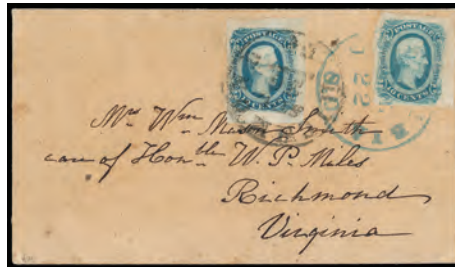 POSTAGE
POSTAGE
CENTS
CENTS
22
Mrs Wm Mason Smith
care of Honble W. P. Miles
Richmond
Virginia